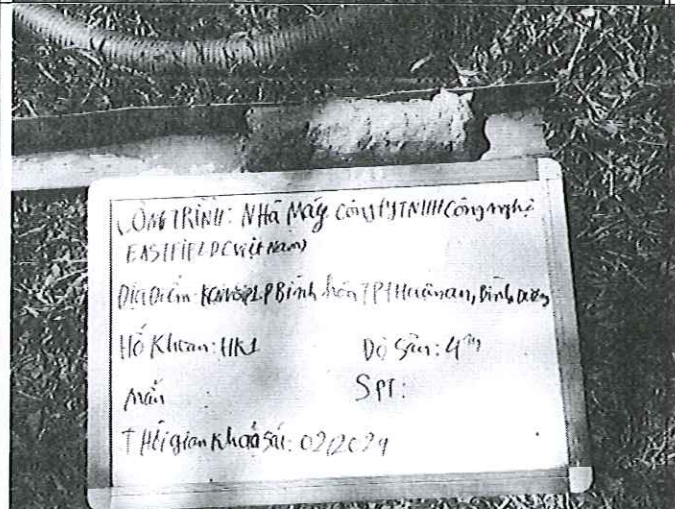 CÔNG TRÌNH: NHà Máy Công ty TNHH Công nghệ
EASTFIELD (Việt Nam)
Địa Điểm: KCN P Bình hòa TP Thuận an, Bình Dương
Hố Khoan: HK1 Độ Sâu: 4m
Mẫu : SPT:
THời gian Khảo Sát: 02/2024